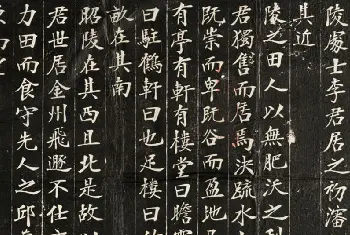 陵處士李君居之初潘
其近
陵之田人以無肥沃之利
君獨售而居焉決疏水
既崇而卑既谷而盈地
有亭有軒有樓堂曰瞻
曰駐鶴軒曰也足樓曰
畝在其南
昭陵在其西且北是故
君世居金州飛遯不仕
力田而食守先人之邱